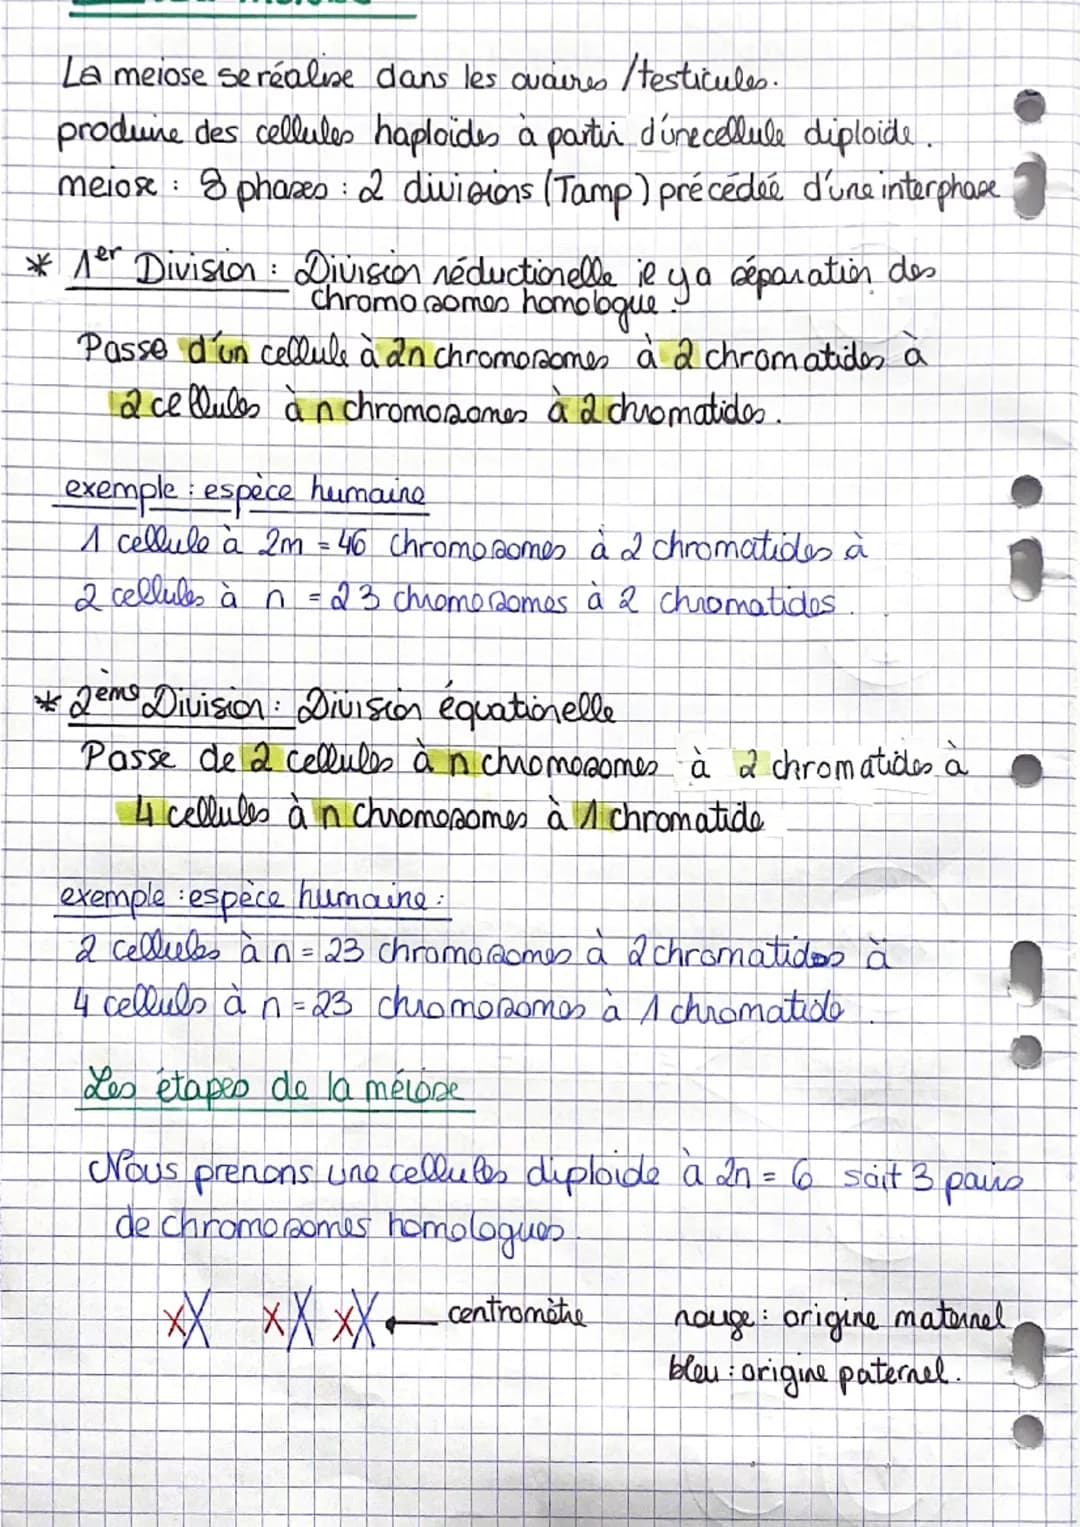 La meiose se réalise dans les ovaires / testicules.
produire des cellules haploïdes à partir d'une cellule diploïde.
meiose : 8 phases : 2 divisions (Tamp) précédée d'une interphase
* 1er Division : Division réductionelle ie y a séparation des
chromosomes homologue.
Passe d'un cellule à 2n chromosomes à 2 chromatides à
2 cellules à n chromosomes à 2 chromatides.
exemple : espèce humaine
1 cellule à 2m = 46 chromosomes à 2 chromatides à
2 cellules à n = 23 chromosomes à 2 chromatides.
* 2ème Division : Division équationelle
Passe de 2 cellules à n chromosomes à 2 chromatides à
4 cellules à n chromosomes à 1 chromatide
exemple : espèce humaine :
2 cellules à n = 23 chromosomes à 2 chromatides à
4 celluls à n = 23 chromosomes à 1 chromatide.
Les étapes de la méiose
Nous prenons une cellules diploide à 2n = 6 soit 3 pairs
de chromosomes homologues.
centromètre rouge : origine maternel
bleu : origine paternel.